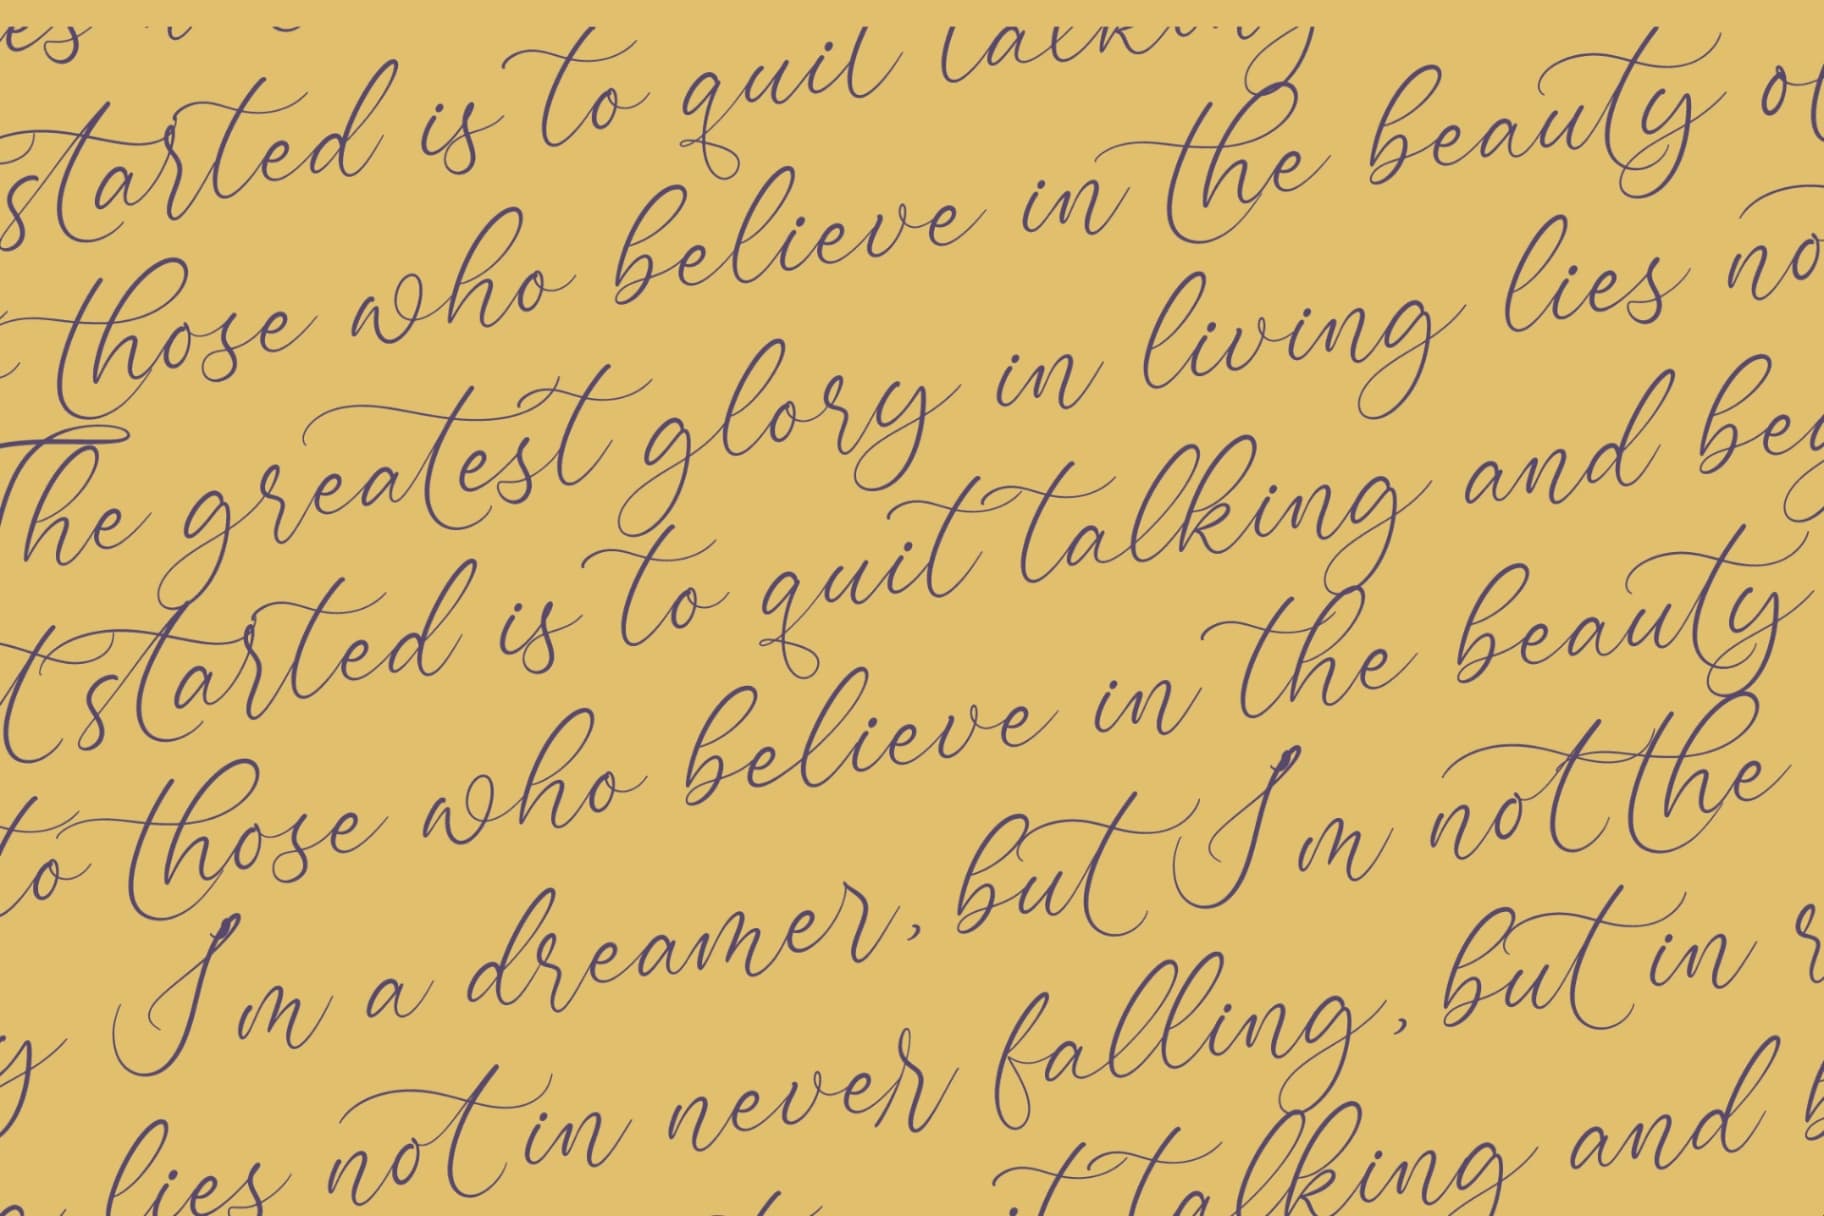 started is to quit talking
those who believe in the beauty of
The greatest glory in living lies no
t started is to quit talking and beg
to those who believe in the beauty
y I'm a dreamer, but I'm not the
lies not in never falling, but in r
talking and b